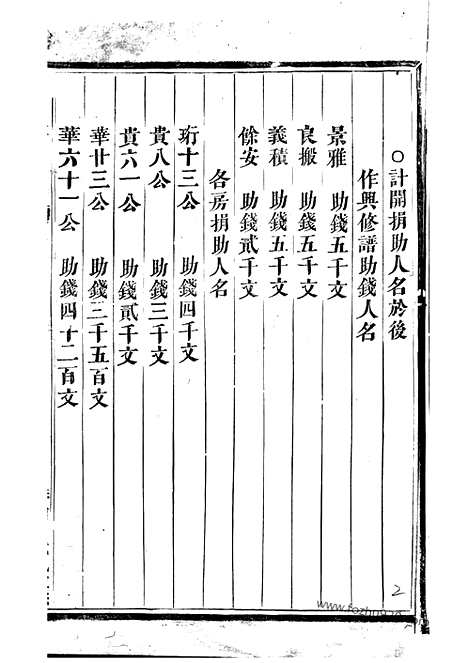 ○計開捐助人名於後
作興修譜助錢人名
景雅 助錢五千文
良搬 助錢五千文
義積 助錢五千文
餘安 助錢貳千文
各房捐助人名
珩十三公 助錢四千文
貴八公 助錢三千文
貴六一公 助錢貳千文
華廿三公 助錢三千五百文
華六十一公 助錢四十二百文
2